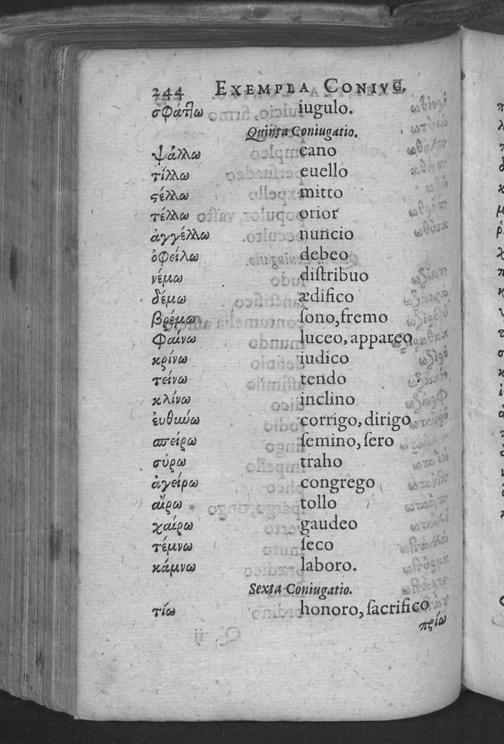 244 EXEMPLA CONIVG.
σφάτ̔ω iugulo.
Quinta Coniugatio.
ψάλλω cano
τίλλω euello
ϛέλλω mitto
τέλλω orior
ἀγγέλλω nuncio
ὀφείλω debeo
νέμω diſtribuo
δέμω ædifico
βρέμω ſono, fremo
φαίνω luceo, appareo
κρίνω iudico
τείνω tendo
κλίνω inclino
ἐυθιύω corrigo, dirigo
σπείρω ſemino, ſero
σύρω traho
ἀγείρω congrego
αἴρω tollo
χαίρω gaudeo
τέμνω ſeco
κάμνω laboro.
Sexta Coniugatio.
τίω honoro, ſacrifico
πρίω